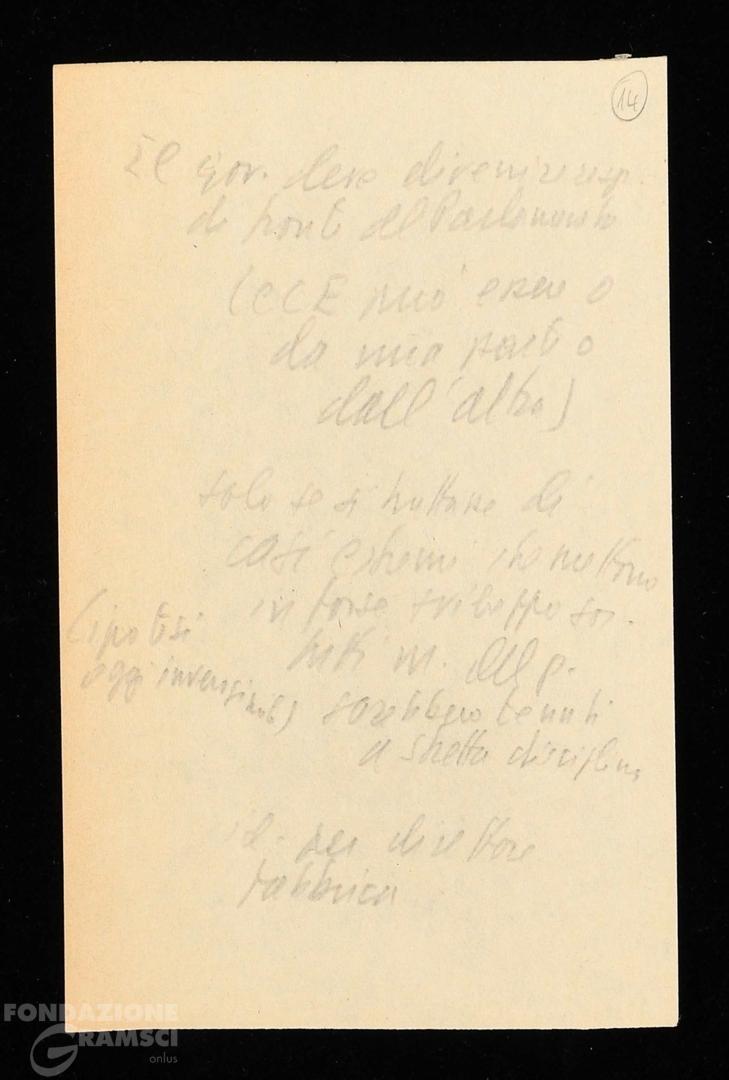 14
Il gov. deve divenire resp.
di fronte al Parlamento
(CCE può essere o
da una parte o
dall'altra)
solo se si trattasse di
casi estremi che mettono
in forse sviluppo soc.
tutti m. del p.
(ipotesi
oggi inverosimile) sarebbero tenuti
a stretta disciplina
id. per direttore
fabbrica
FONDAZIONE
GRAMSCI
onlus